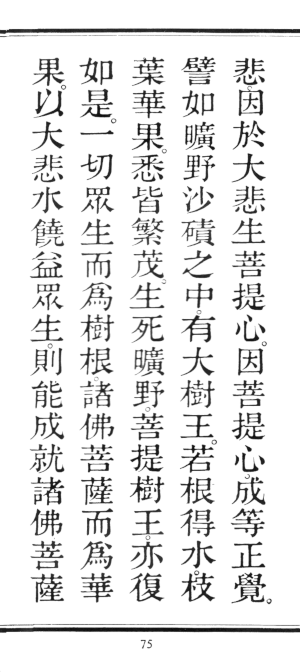 悲。因於大悲生菩提心。因菩提心。成等正覺。
譬如曠野沙磧之中。有大樹王。若根得水。枝
葉華果。悉皆繁茂。生死曠野。菩提樹王。亦復
如是。一切眾生而為樹根。諸佛菩薩而為華
果。以大悲水饒益眾生。則能成就諸佛菩薩
75